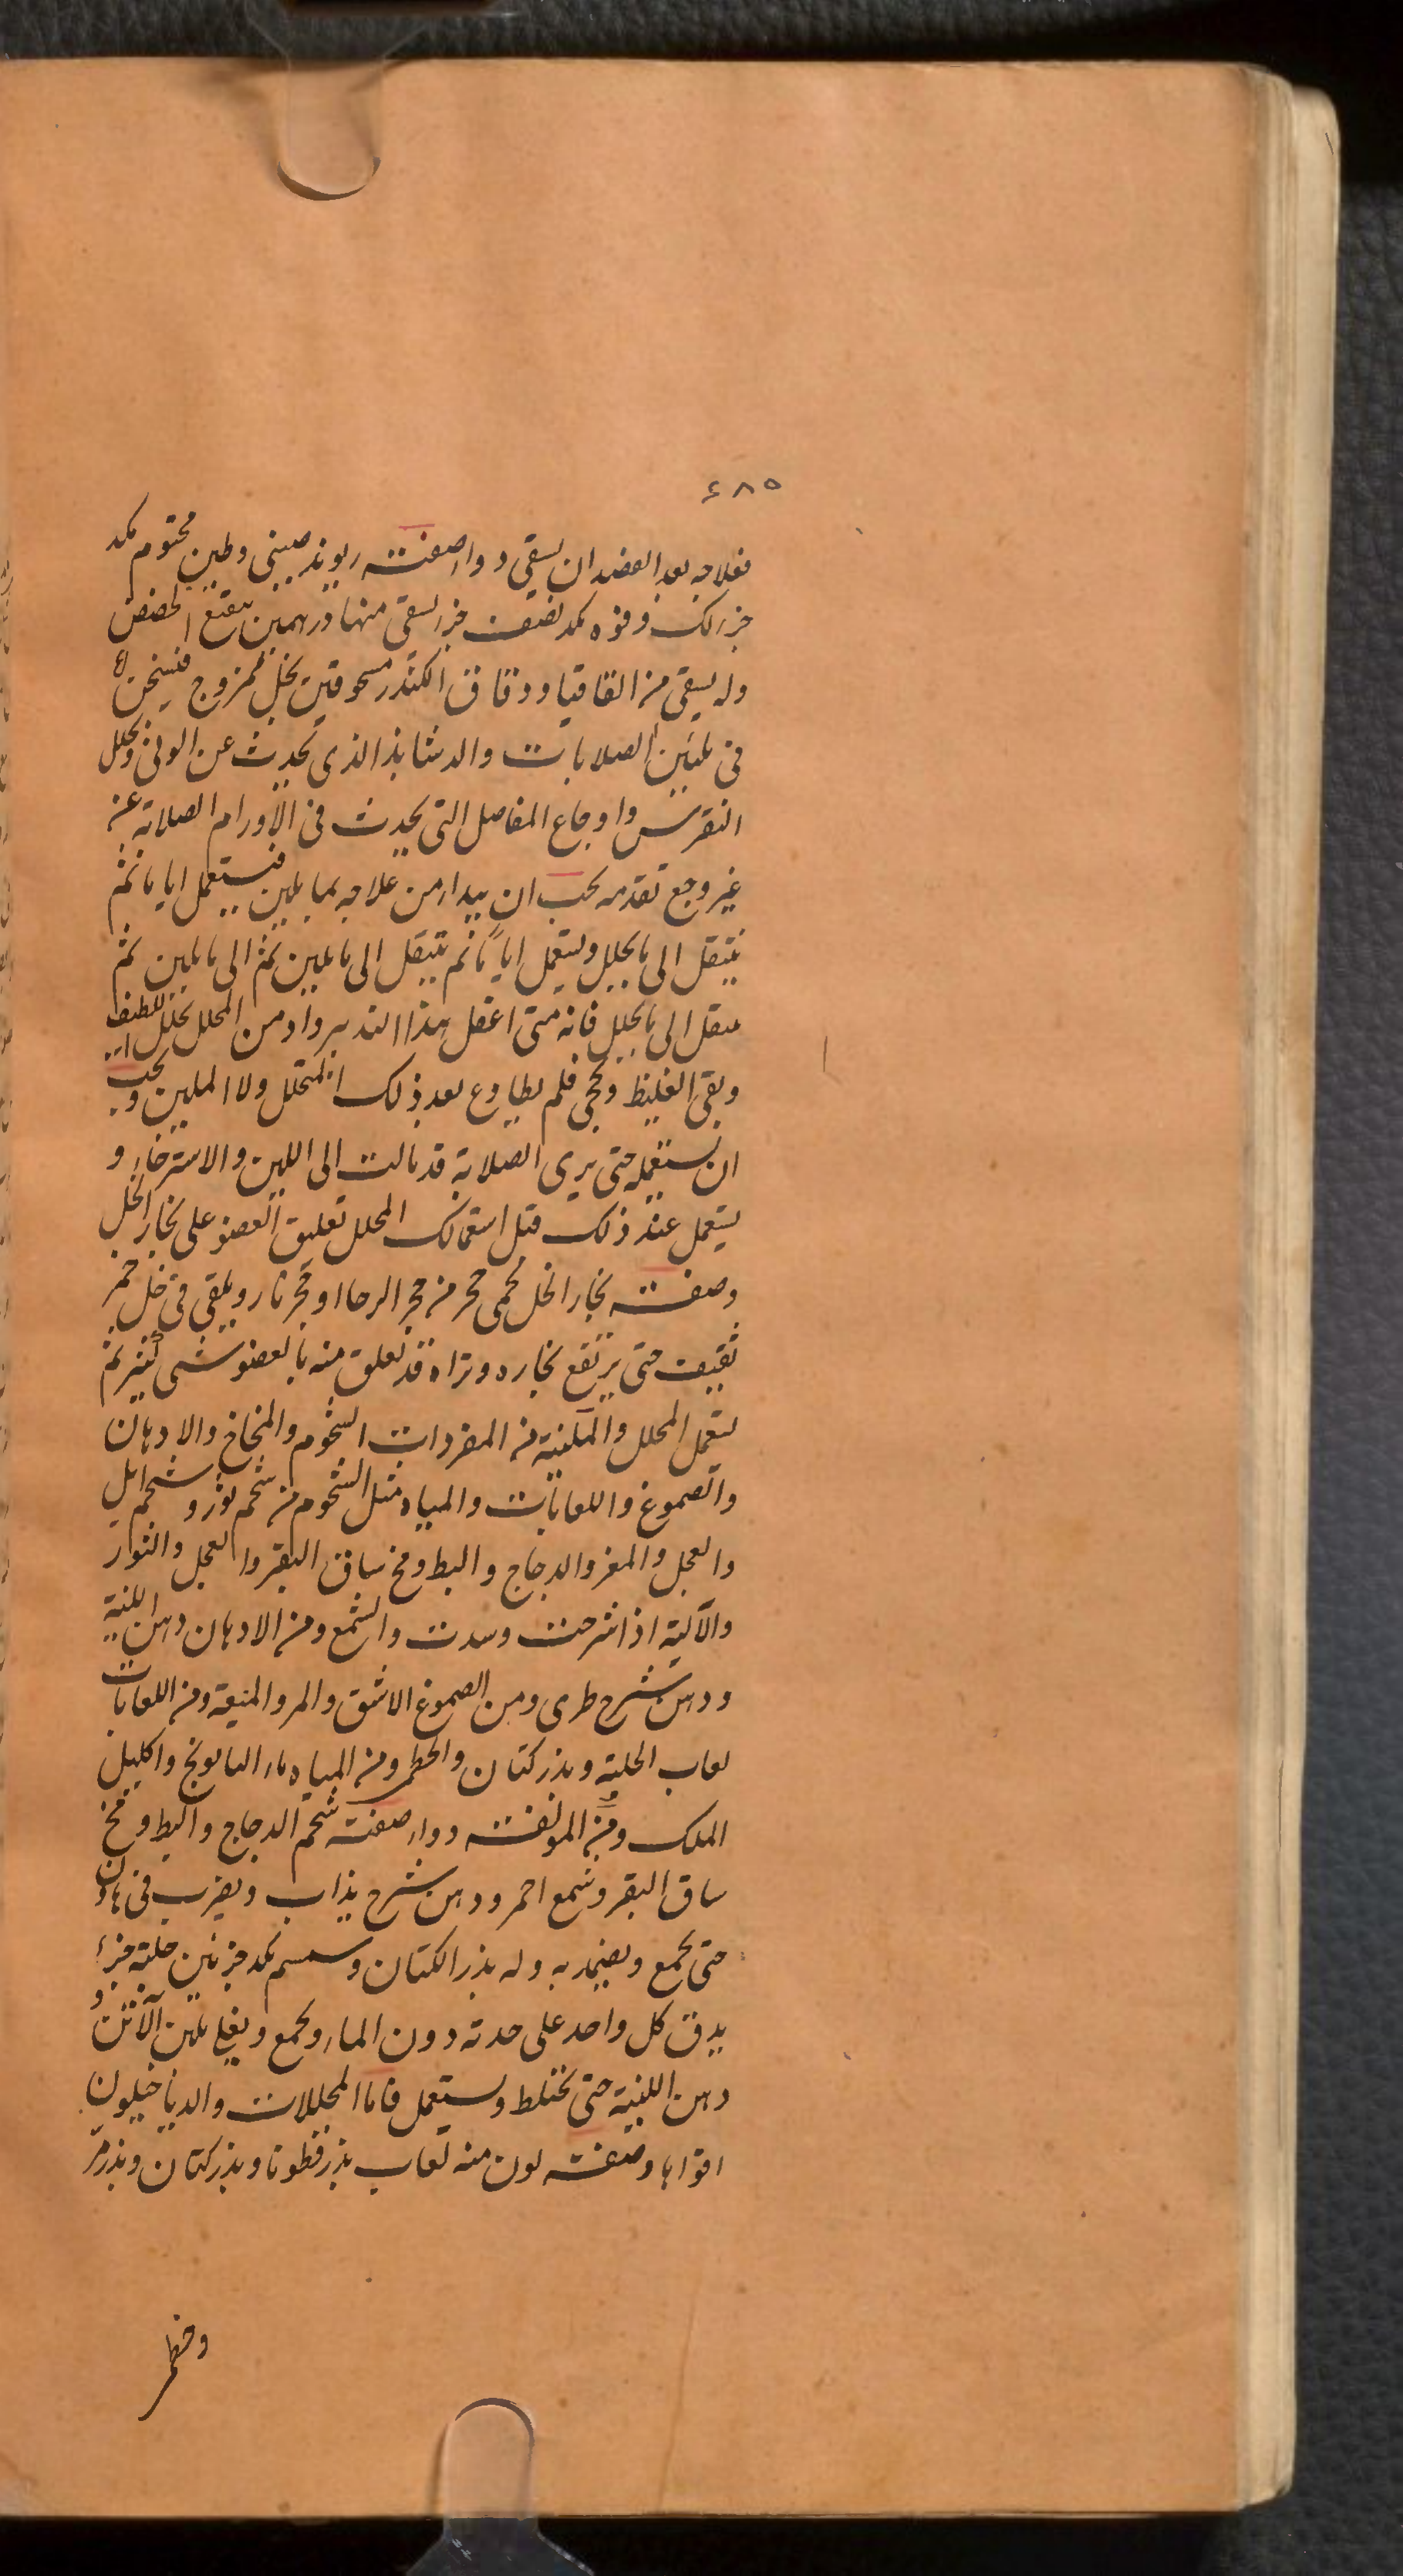 ٤٨٥
فعلاجه بعد الفصد ان يسقى دواء صفته ريوند صينى وطين مختوم مكد
جزء لك وفوه مكد نصف جزء يسقى منها درهمين بنقيع الحمص
وله يسقى من القاقيا ودقاق الكندر مسحوقين بخل ممزوج فسخن
فى تليين الصلابات والدشابذ الذى يحدث عن الوثى وتحلل
النقرس واوجاع المفاصل التى يحدث فى الاورام الصلابة عن
غير وجع تقدمه يجب ان يبداء من علاجه بما يلين فيستعمل اياما ثم
ينتقل الى ما يحلل ويستعمل اياما ثم ينتقل الى ما يلين ثم الى ما يلين ثم
ينتقل الى ما يحلل فانه متى اغفل هذا التدبير وادمن المحلل تحلل اللطيف
وبقى الغليظ وتحجر فلم يطاوع بعد ذلك المتحلل ولا الملين ويجب
ان يستعمله حتى يرى الصلابة قد مالت الى اللين والاسترخاء و
يستعمل عند ذلك قبل استعمالك المحلل تعليق العضو على بخار الخل
وصفته بخار الخل يحمى حجر من حجر الرحا او حجر نار ويلقى فى خل خمر
ثقيف حتى يرتفع بخاره وتراه قد تعلق منه بالعضو شى كثير ثم
يستعمل المحلل والملينة من المفردات الشحوم والمخاخ والادهان
والصموغ واللعابات والمياه مثل الشحوم من شحم ثور وشحم ايل
والعجل والمعز والدجاج والبط ومخ ساق البقر والعجل والثور
والالية اذا شرحت وسدت والشمع ومن الادهان دهن اللنية
ودهن شيرج طرى ومن الصموغ الاشق والمر والميعة ومن اللعابات
لعاب الحلبة وبذر كتان والخطمى ومن المياه ماء البابونج واكليل
الملك ومن المولفته دواء صفته شحم الدجاج والبط ومخ
ساق البقر وشمع احمر ودهن شيرج يذاب ويضرب فى هاون
حتى يجمع ويضمد به وله بذر الكتان وسمسم مكد جزئين حلبة جزء
يدق كل واحد على حدته دون الماء ويجمع ويغلى بلبن الاتن و
دهن اللنية حتى يختلط ويستعمل فاما المحللات والدياخيلون
اقواها وصفته لون منه لعاب بذر قطونا وبذر كتان وبذر مر
وخطمى